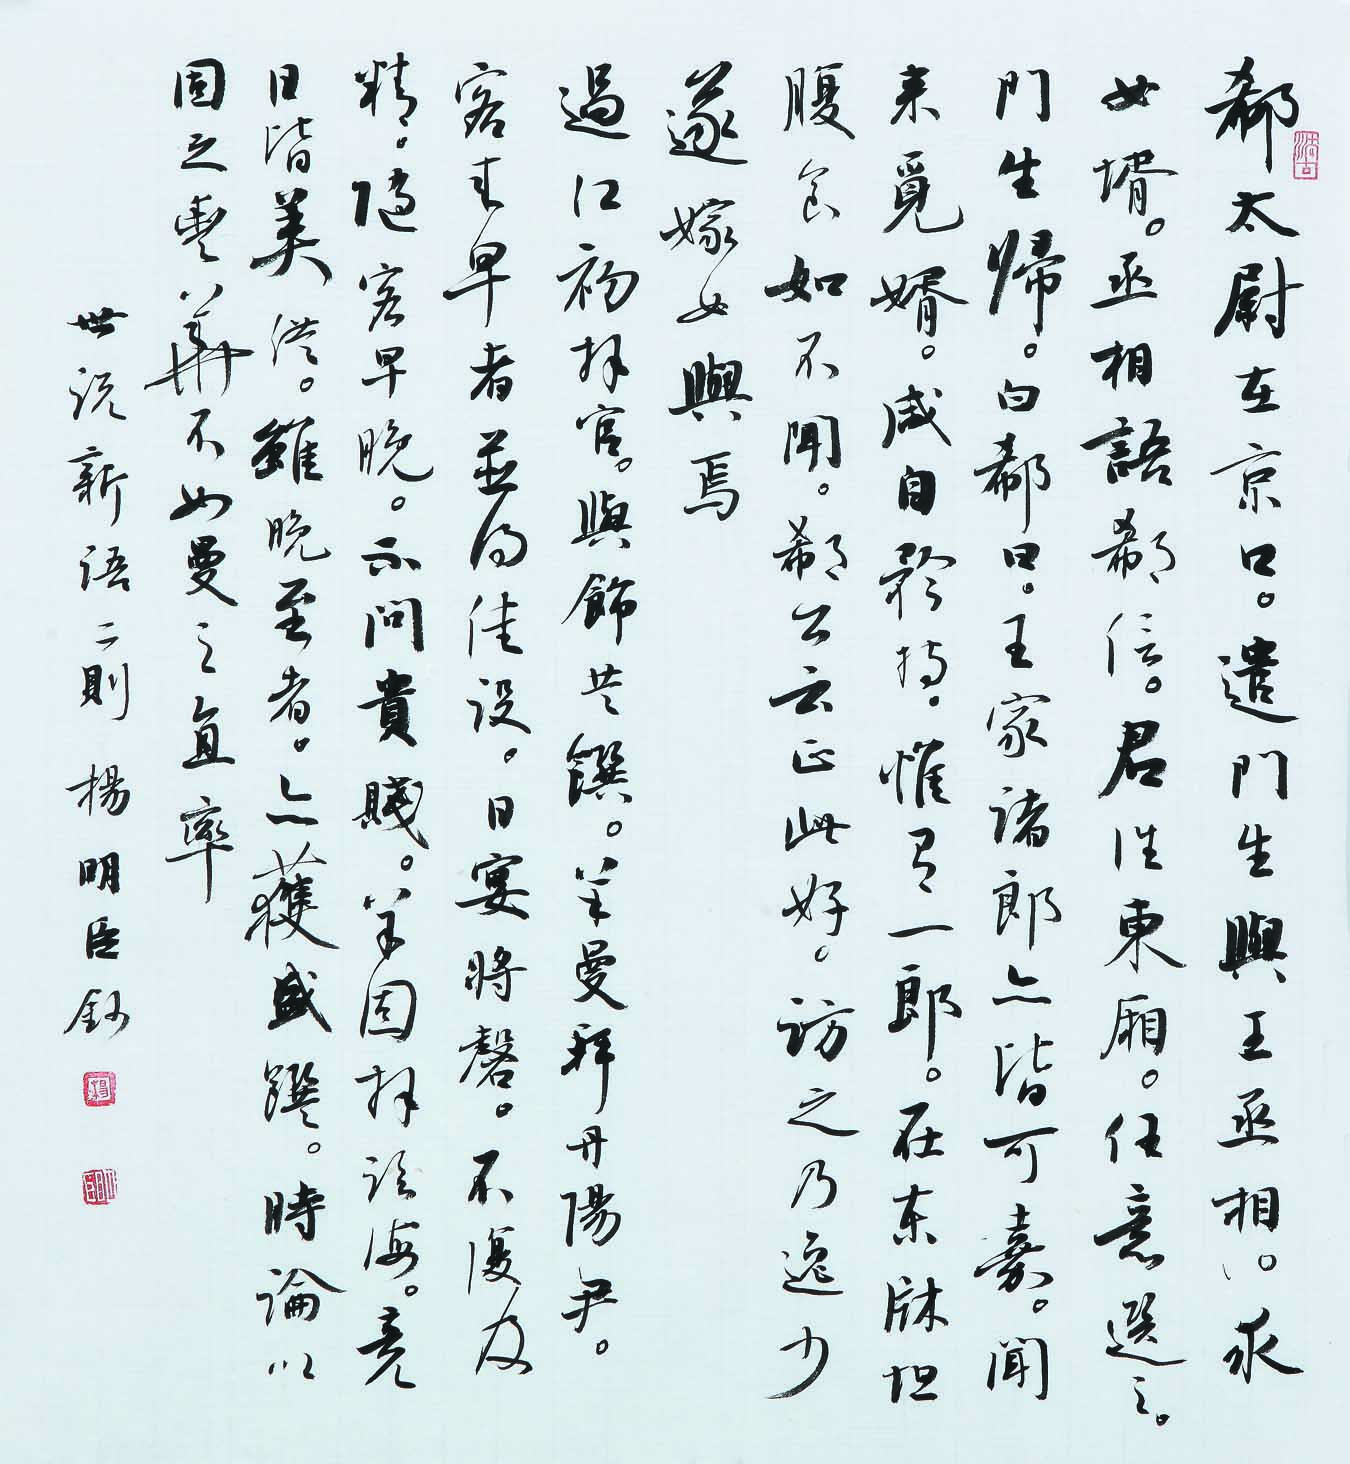 郗太尉在京口。遣門生與王丞相。求
女壻。丞相語郗信。君往東廂。任意選之。
門生歸。白郗曰。王家諸郎亦皆可嘉。聞
来覓婿。咸自矜持。惟有一郎。在東牀坦
腹食如不聞。郗公云正此好。訪之乃逸少
遂嫁女與焉
過江初拜官。與飾共饌。羊曼拜丹陽尹。
客来早者並得佳設。日宴將罄。不復及
精。隨客早晚。不問貴賤。羊固拜臨海。竟
日皆美供。雖晚至者。亦獲盛饌。時論以
固之豐華不如曼之真率
世説新語二則 楊明臣鈔